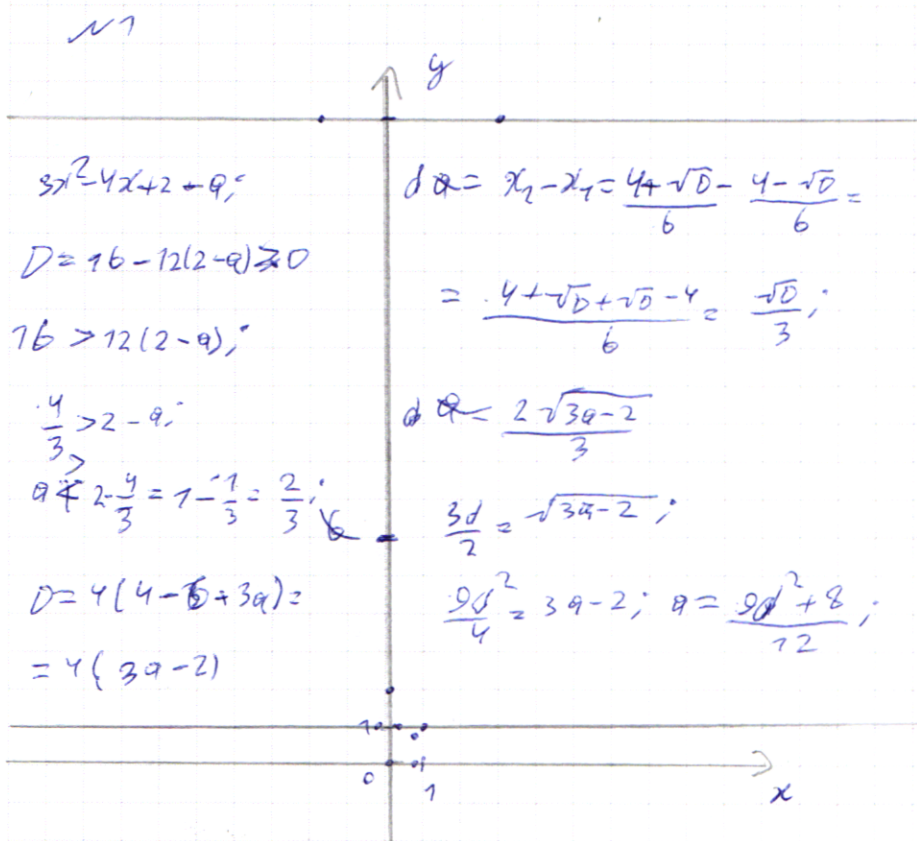 №1
y
3x²-4x+2-a;
D=16-12(2-a)≥0
16>12(2-a);
4/3>2-a;
a>2-4/3=1-1/3=2/3;
D=4(4-6+3a)=
=4(3a-2)
d = x₂-x₁= (4+√D)/6 - (4-√D)/6 =
= (4+√D+√D-4)/6 = √D/3;
d = 2√(3a-2)/3
3d/2 = √(3a-2);
9d²/4 = 3a-2; a= (9d²+8)/12;
1
0
1
x